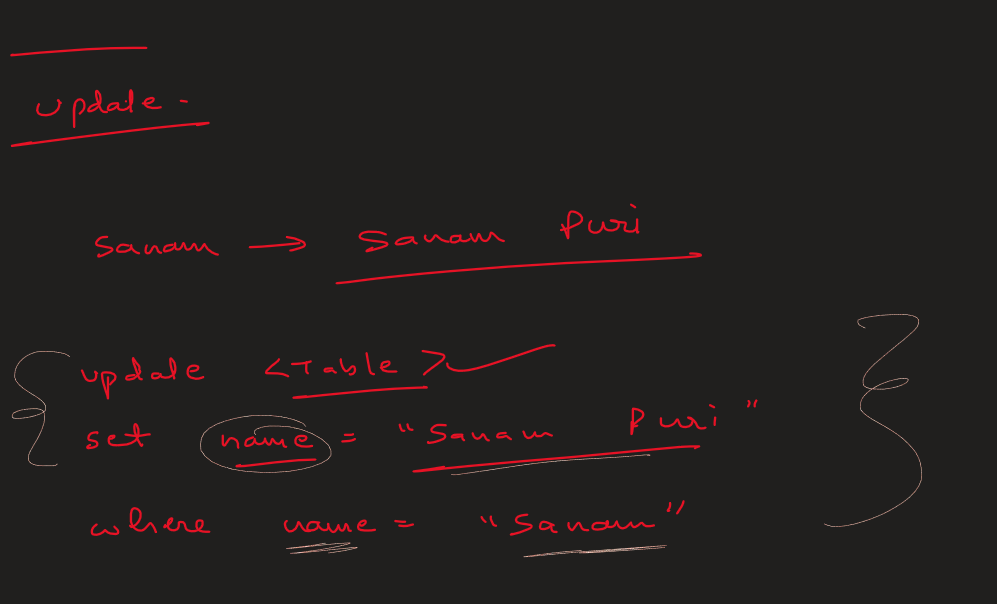 update -
Sanam → Sanam Puri
update <Table>
set name = "Sanam Puri"
where name = "Sanam"